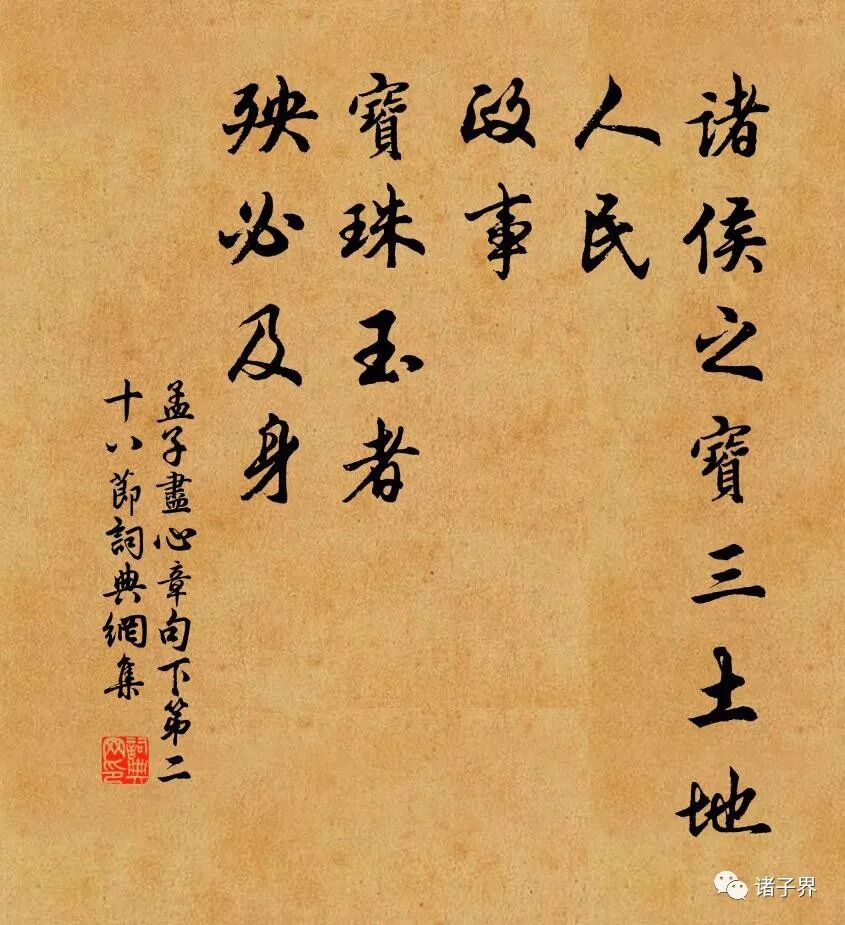 诸侯之寶三土地
人民
政事
寶珠玉者
殃必及身
孟子盡心章句下第二
十八節詞典網集
詞典
网印
诸子界